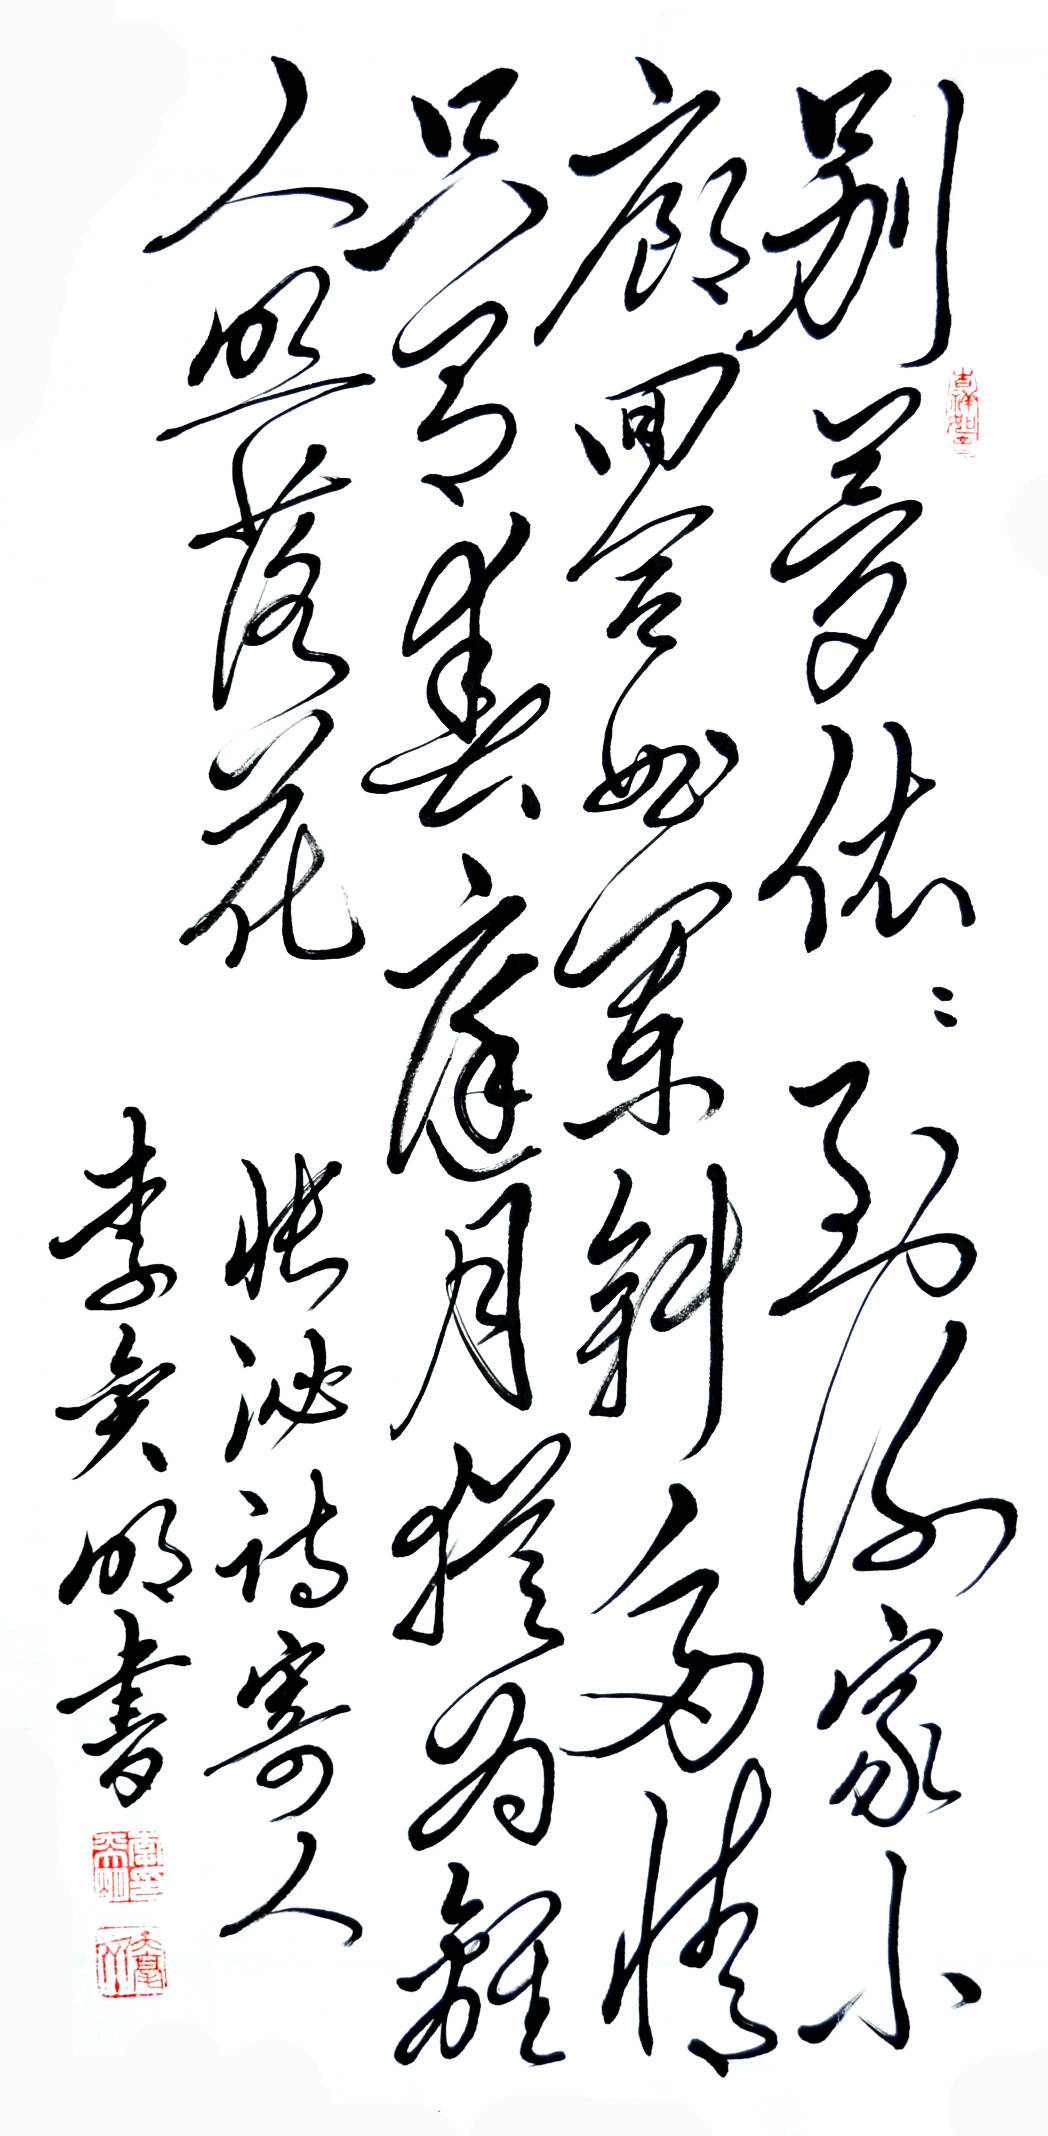 别夢依〻到谢家小
廊回合曲阑斜多情
只有春庭月猶为離
人照落花
张泌诗寄人
李 明书
吉祥如意